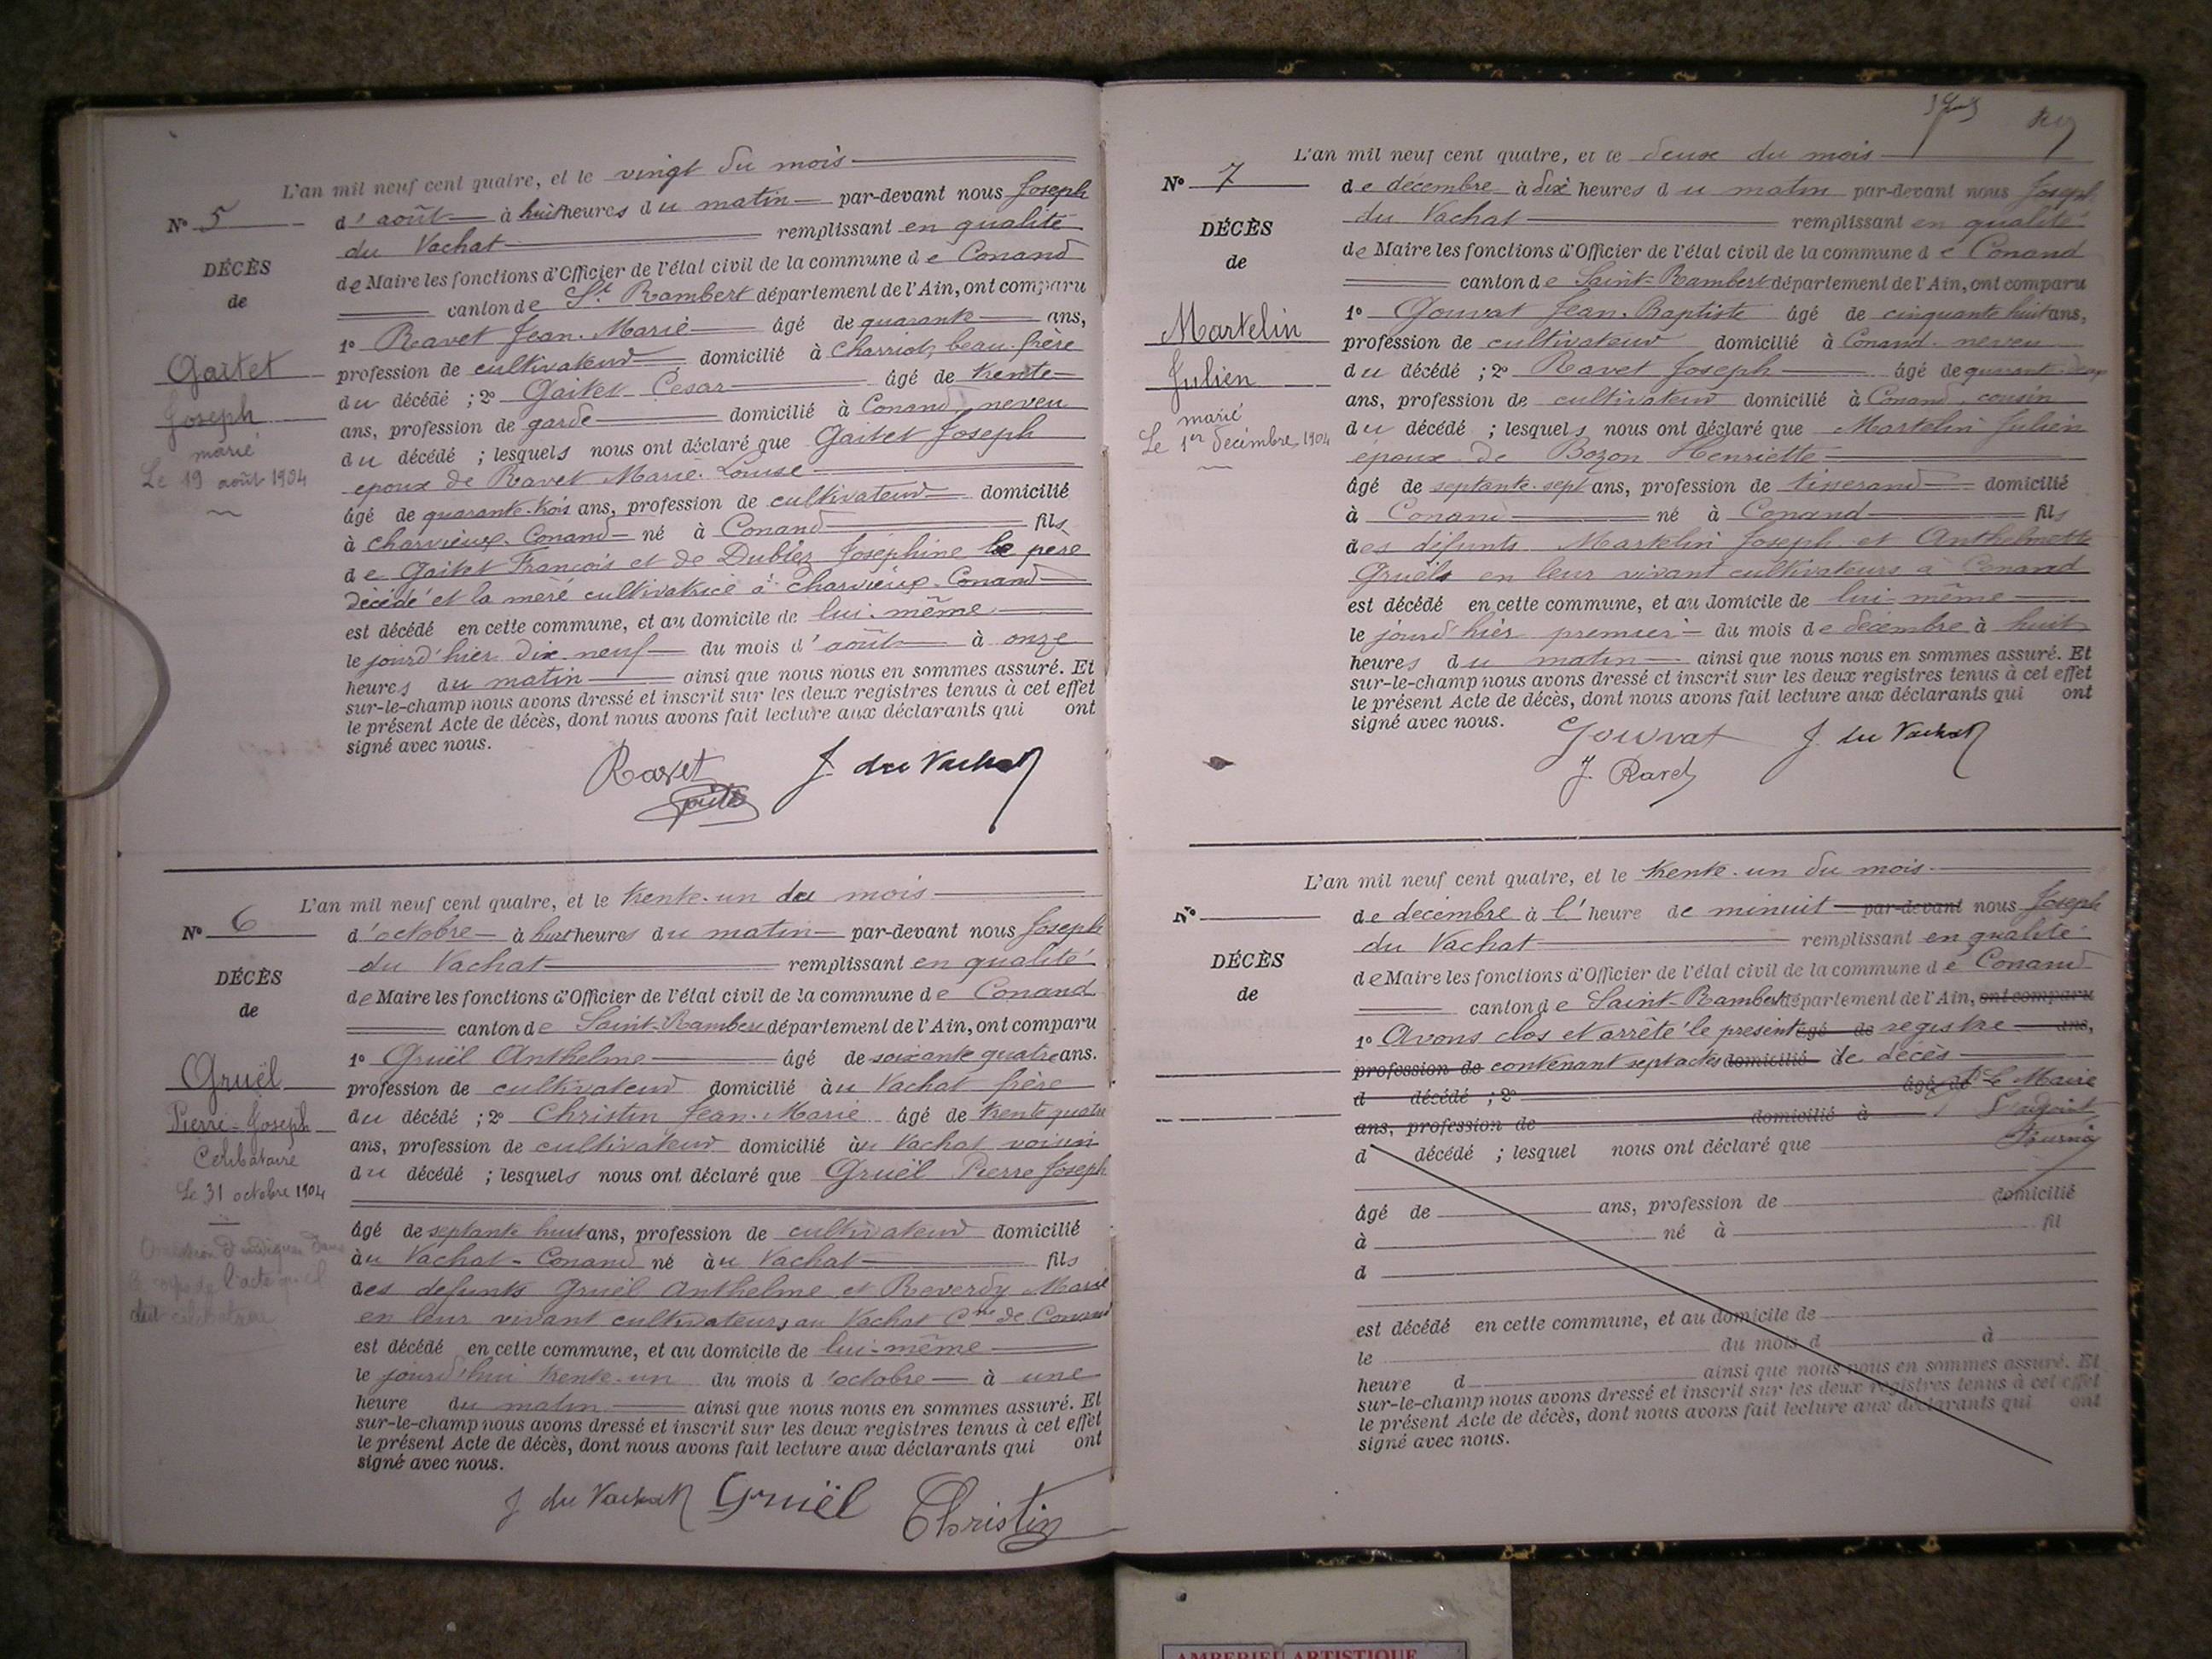 L'an mil neuf cent quatre, et le vingt du mois
N° 5
d'août à huit heures du matin par-devant nous Joseph
du Vachat remplissant en qualité
DÉCÈS
de Maire les fonctions d'Officier de l'état civil de la commune de Conand
de
canton de St Rambert département de l'Ain, ont comparu
1° Ravet Jean-Marie âgé de quarante ans,
Gaitet
profession de cultivateur domicilié à Charriot, beau-frère
du décédé ; 2° Gaitet Cesar âgé de trente
Joseph
ans, profession de garde domicilié à Conand, neveu
marié
du décédé ; lesquels nous ont déclaré que Gaitet Joseph
Le 19 août 1904
epoux de Ravet Marie-Louise
âgé de quarante-trois ans, profession de cultivateur domicilié
à charvieux-Conand né à Conand fils
de Gaitet François et de Dubiez Joséphine le père
décédé et la mère cultivatrice à charvieux-Conand
est décédé en cette commune, et au domicile de lui-même
le jourd'hier dix-neuf du mois d'août à onze
heures du matin ainsi que nous nous en sommes assuré. Et
sur-le-champ nous avons dressé et inscrit sur les deux registres tenus à cet effet
le présent Acte de décès, dont nous avons fait lecture aux déclarants qui ont
signé avec nous.
Ravet J. du Vachat
L'an mil neuf cent quatre, et le trente-un du mois
N° 6
d'octobre à huit heures du matin par-devant nous Joseph
du Vachat remplissant en qualité
DÉCÈS
de Maire les fonctions d'Officier de l'état civil de la commune de Conand
de
canton de Saint-Rambert département de l'Ain, ont comparu
1° Gruël Anthelme âgé de soixante quatre ans.
Gruël
profession de cultivateur domicilié àu Vachat frère
Pierre-Joseph
du décédé ; 2° Christin Jean-Marie âgé de trente quatre
ans, profession de cultivateur domicilié àu Vachat voisin
Celibataire
du décédé ; lesquels nous ont déclaré que Gruël Pierre Joseph
Le 31 octobre 1904
âgé de septante huit ans, profession de cultivateur domicilié
àu Vachat-Conand né àu Vachat fils
des defunts Gruël Anthelme et Reverdy Marie
en leur vivant cultivateurs au Vachat Cne de Conand
est décédé en cette commune, et au domicile de lui-même
le jourd'hui trente-un du mois d'octobre à une
heure du matin ainsi que nous nous en sommes assuré. Et
sur-le-champ nous avons dressé et inscrit sur les deux registres tenus à cet effet
le présent Acte de décès, dont nous avons fait lecture aux déclarants qui ont
signé avec nous.
J. du Vachat Gruël Christin
L'an mil neuf cent quatre, et le deux du mois
N° 7
de décembre à dix heures du matin par-devant nous Joseph
du Vachat remplissant en qualité
DÉCÈS
de Maire les fonctions d'Officier de l'état civil de la commune de Conand
de
canton de Saint-Rambert département de l'Ain, ont comparu
1° Gouvat Jean-Baptiste âgé de cinquante huit ans,
Martelin
profession de cultivateur domicilié à Conand neveu
Julien
du décédé ; 2° Ravet Joseph âgé de quarante deux
ans, profession de cultivateur domicilié à Conand, cousin
marié
du décédé ; lesquels nous ont déclaré que Martelin Julien
Le 1er décembre 1904
époux de Bozon Henriette
âgé de septante-sept ans, profession de tisserand domicilié
à Conand né à Conand fils
des défunts Martelin Joseph et Anthelmette
Gruël en leur vivant cultivateurs à Conand
est décédé en cette commune, et au domicile de lui-même
le jourd'hier premier du mois de décembre à huit
heures du matin ainsi que nous nous en sommes assuré. Et
sur-le-champ nous avons dressé et inscrit sur les deux registres tenus à cet effet
le présent Acte de décès, dont nous avons fait lecture aux déclarants qui ont
signé avec nous.
Gouvat J. du Vachat
J. Ravet
L'an mil neuf cent quatre, et le trente-un du mois
N°
de décembre à l'heure de minuit par-devant nous Joseph
du Vachat remplissant en qualité
DÉCÈS
de Maire les fonctions d'Officier de l'état civil de la commune de Conand
de
canton de Saint-Rambert département de l'Ain, ont comparu
1° Avons clos et arrêté le présent âgé de registre ans,
profession de contenant sept actes domicilié de décès
d décédé ; 2° âgé de Le Maire
ans, profession de domicilié à L'adjoint
d décédé ; lesquel nous ont déclaré que
âgé de ans, profession de domicilié
à né à fil
d
est décédé en cette commune, et au domicile de
le du mois d à
heure d ainsi que nous nous en sommes assuré. Et
sur-le-champ nous avons dressé et inscrit sur les deux registres tenus à cet effet
le présent Acte de décès, dont nous avons fait lecture aux déclarants qui ont
signé avec nous.
AMBERIEU ARTISTIQUE